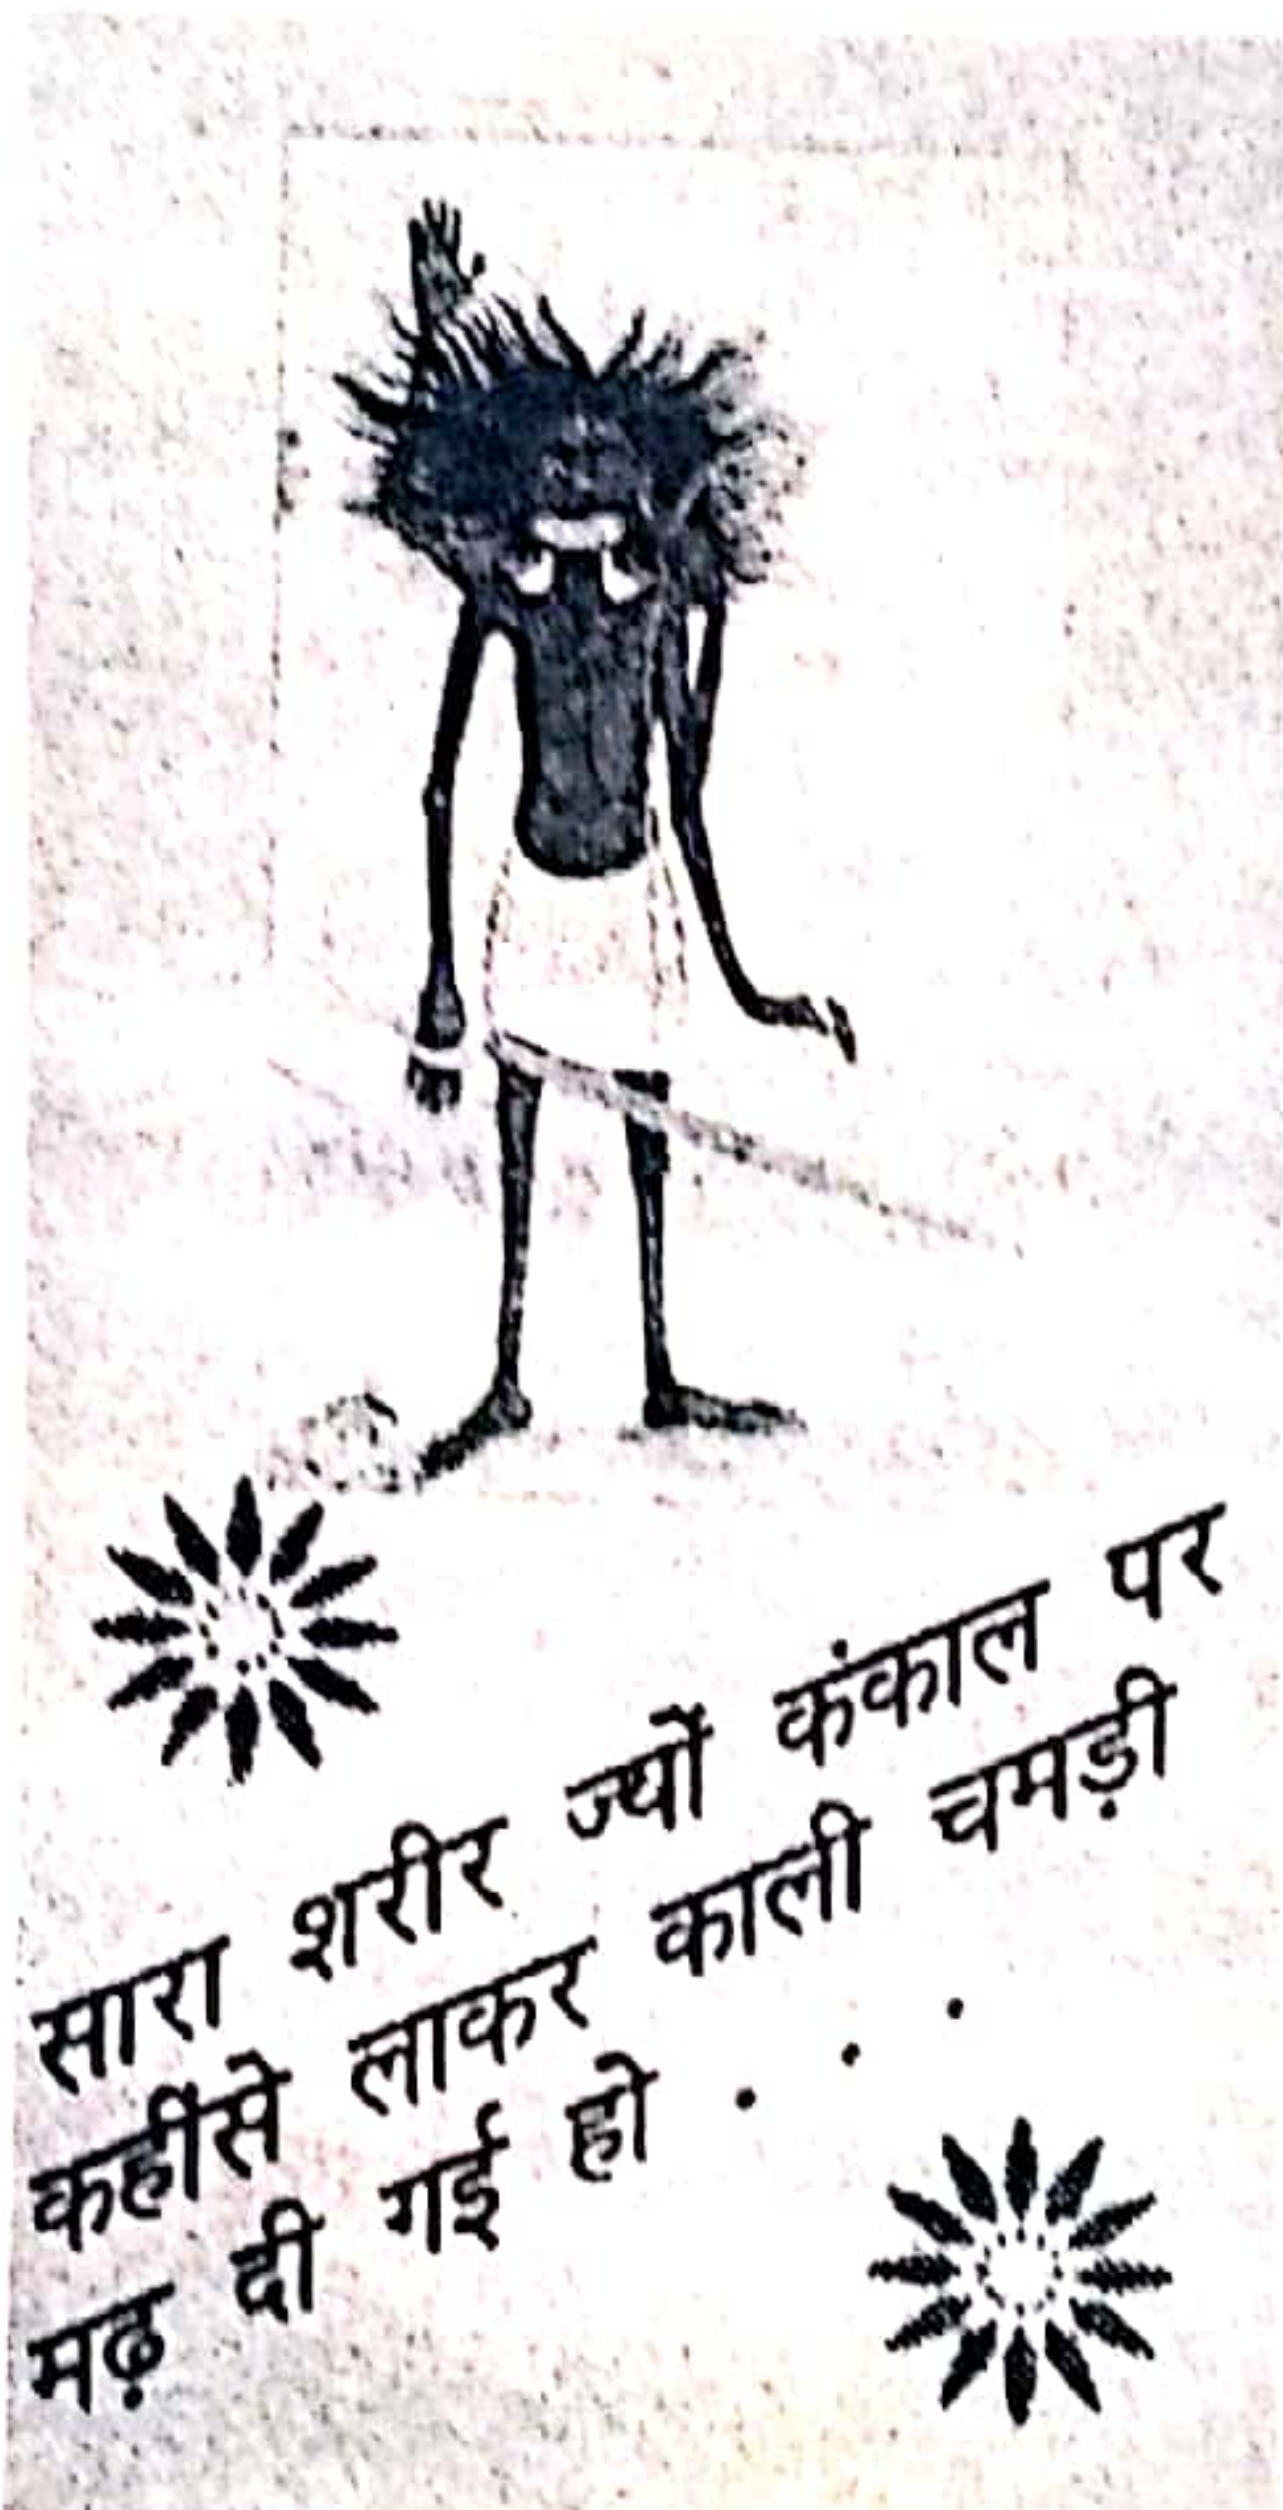 सारा शरीर ज्यों कंकाल पर
कहींसे लाकर काली चमड़ी
मढ़ दी गई हो . . .